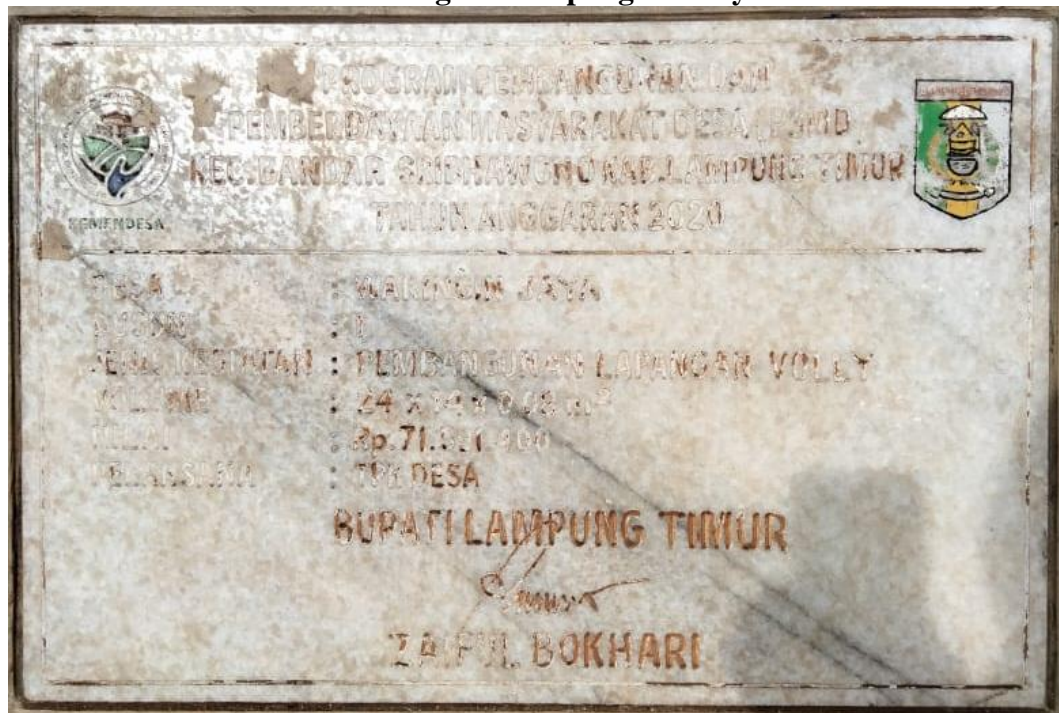 PROGRAM PEMBANGUNAN DAN
PEMBERDAYAAN MASYARAKAT DESA (P3MD
KEC. BANDAR SRIBHAWONO KAB. LAMPUNG TIMUR
TAHUN ANGGARAN 2020
KEMENDESA
DESA : WARINGIN JAYA
DUSUN : I
JENIS KEGIATAN : PEMBANGUNAN LAPANGAN VOLLY
VOLUME : 24 X
NILAI : Rp.71.
PELAKSANA : TPK DESA
BUPATI LAMPUNG TIMUR
ZAIFUL BOKHARI